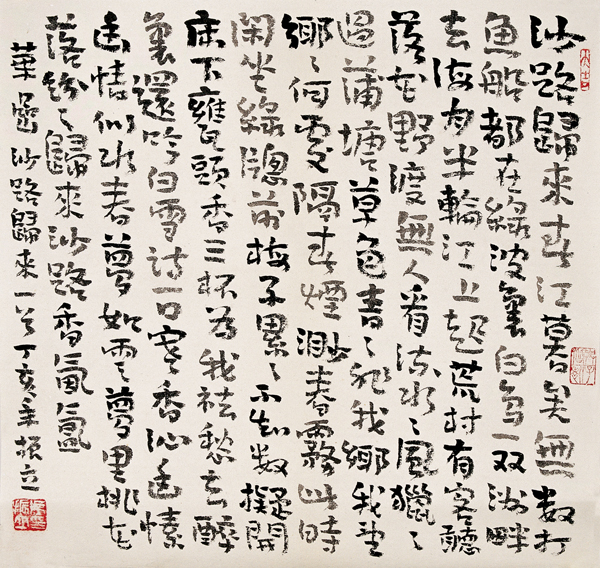 沙路歸來春江暮矣無數打
魚船都在綠波裏白鳥一双洲畔
去海月半輪江上起荒村有客聽
落花野渡無人看流水々風獵々
過蒲塘草色青々非我鄉我望
鄉々何處隔春煙渺春霧此時
閑坐綠窓前梅子累々不知數擬開
床下甕頭香三杯為我祛愁去醉
裏還吟白雪詩一口寒香沁幽愫
幽情似水春夢如雲夢里桃花
落紛々歸來沙路香氤氳
葉 沙路歸來一首丁亥年振立